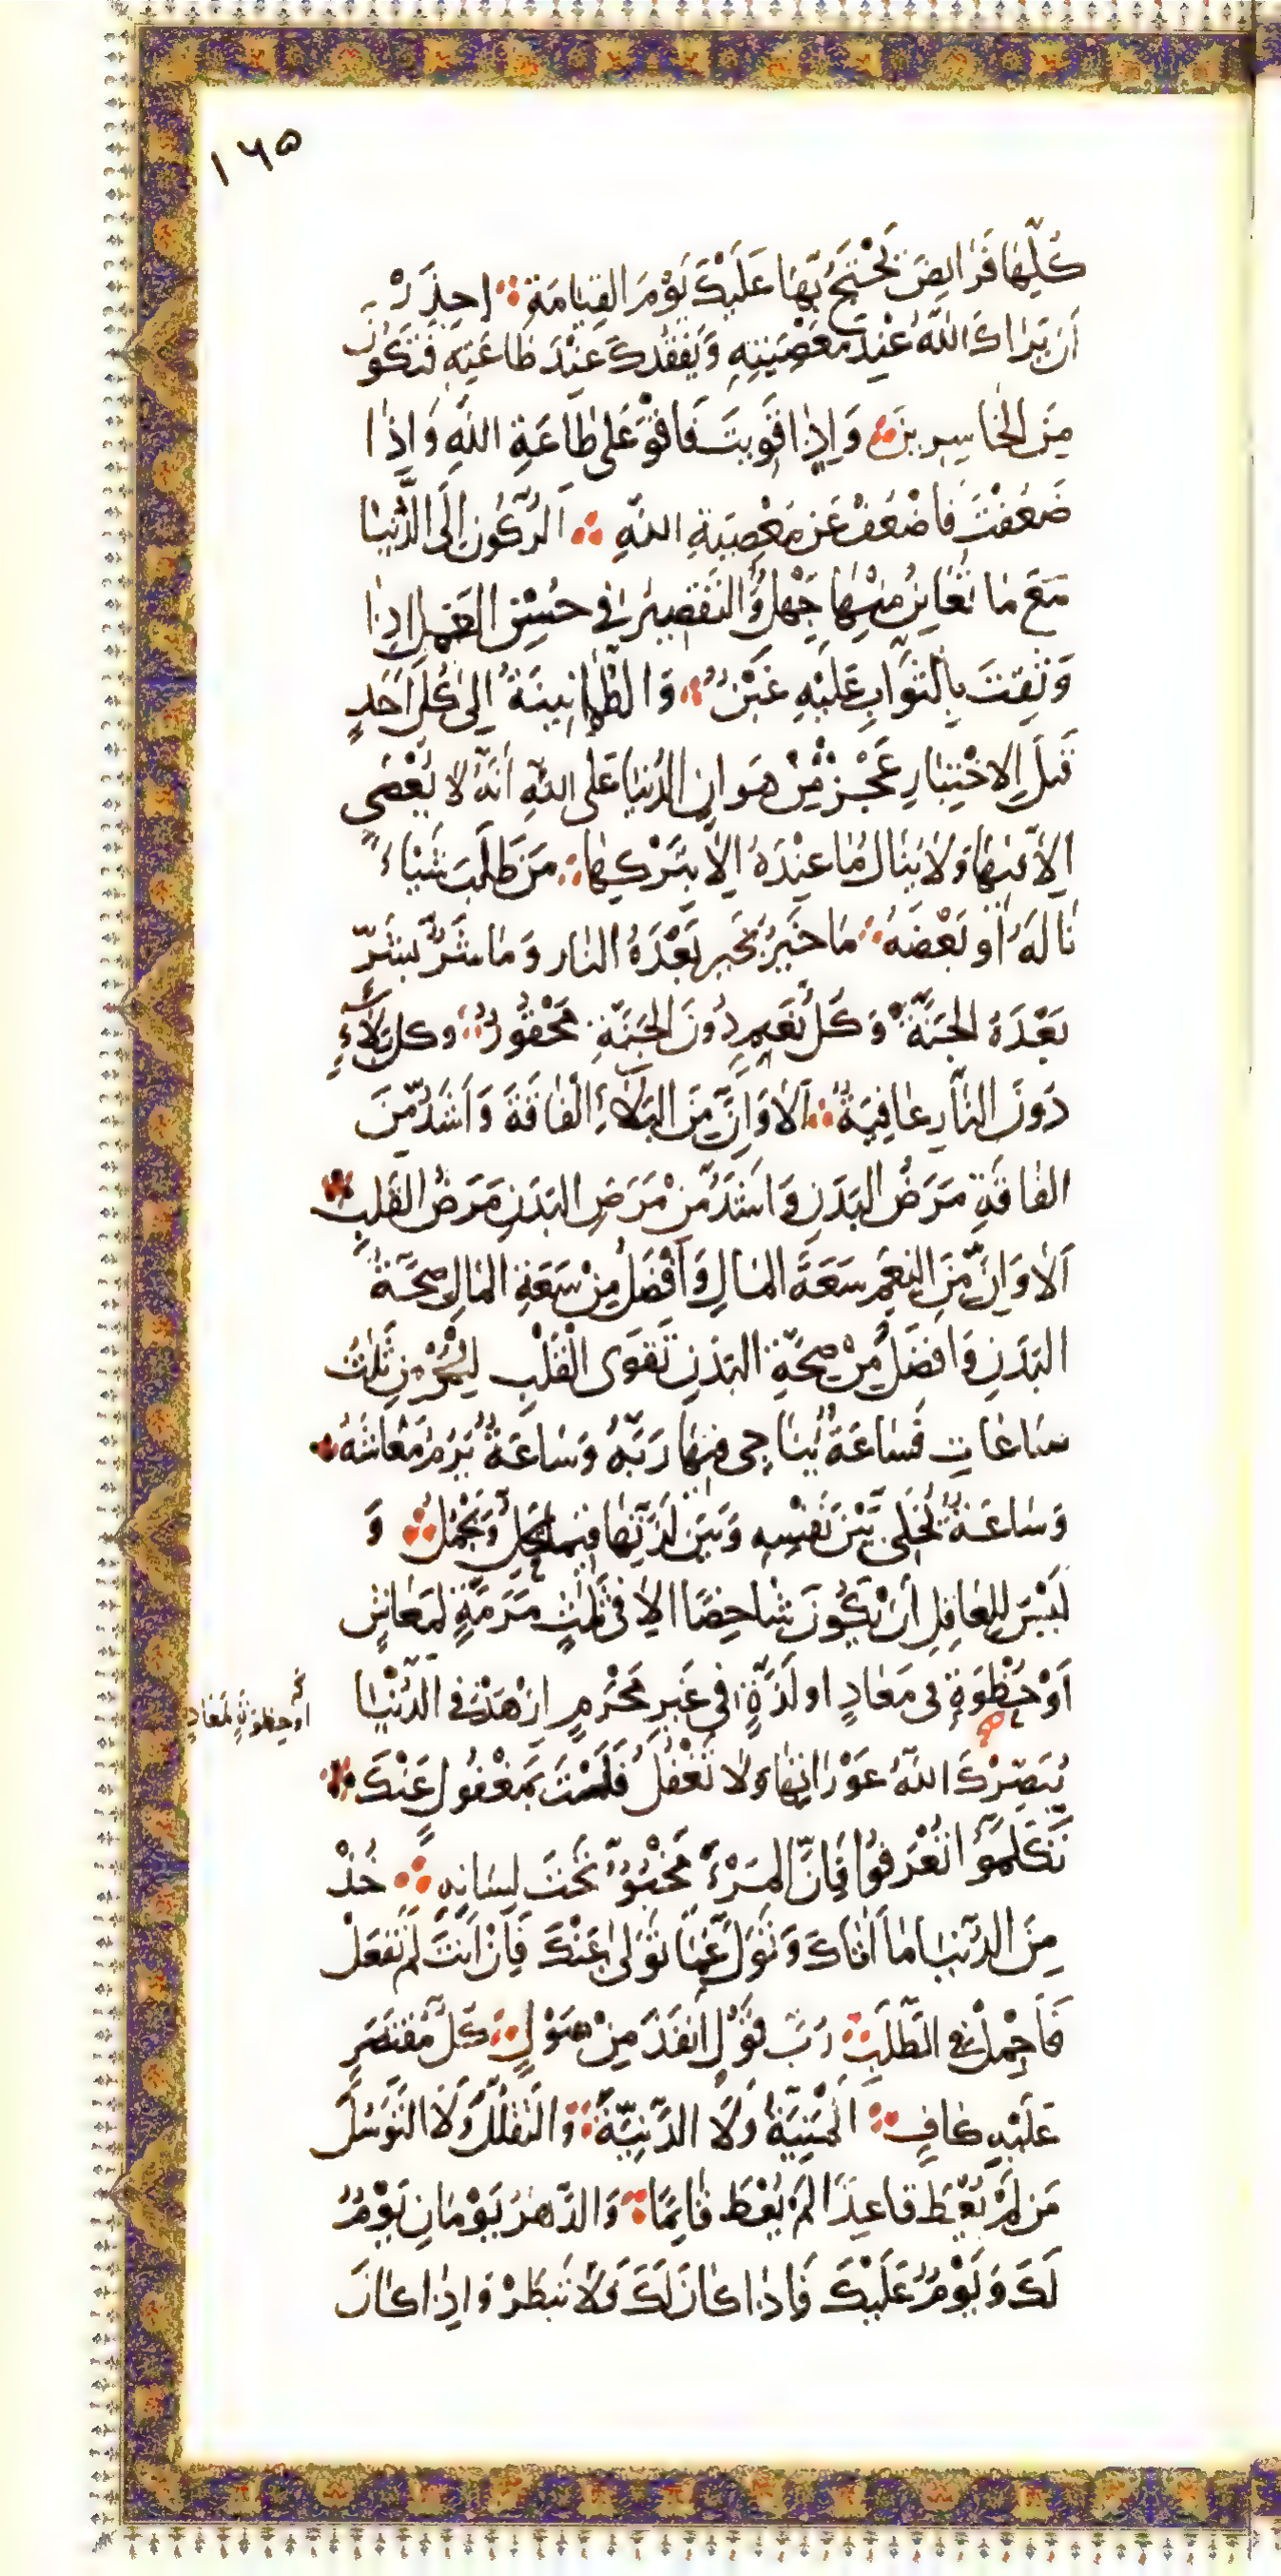 ١٦٥
كُلِّهَا فَرَايِضَ يَحْتَجُّ بِهَا عَلَيْكَ يَوْمَ القِيَامَةِ اِحْذَرْ
اَنْ يَرَاكَ اللهُ عِنْدَ مَعْصِيَتِهِ وَيَفْقِدَكَ عِنْدَ طَاعَتِهِ فَتَكُونَ
مِنَ الخَاسِرِينَ وَاِذَا قَوِيتَ فَاقْوَ عَلَى طَاعَةِ اللهِ وَاِذَا
ضَعُفْتَ فَاضْعُفْ عَنْ مَعْصِيَةِ اللهِ الرُّكُونُ اِلَى الدُّنْيَا
مَعَ مَا تُعَايِنُ مِنْهَا جَهْلٌ وَالتَّقْصِيرُ فِي حُسْنِ العَمَلِ اِذَا
وَثِقْتَ بِالثَّوَابِ عَلَيْهِ غَبْنٌ وَالطُّمَانِينَةُ اِلَى كُلِّ اَحَدٍ
قَبْلَ الاِخْتِبَارِ عَجْزٌ مِنْ هَوَانِ الدُّنْيَا عَلَى اللهِ اَنَّهُ لَا يُعْصَى
اِلَّا فِيهَا وَلَا يُنَالُ مَا عِنْدَهُ اِلَّا بِتَرْكِهَا مَنْ طَلَبَ شَيْئًا
نَالَهُ اَوْ بَعْضَهُ مَا خَيْرٌ بِخَيْرٍ بَعْدَهُ النَّار وَمَا شَرٌّ بِشَرٍّ
بَعْدَهُ الجَنَّةُ وَكُلُّ نَعِيمٍ دُونَ الجَنَّةِ مَحْقُورٌ وَكُلُّ بَلَآءٍ
دُونَ النَّارِ عَافِيَةٌ اَلَا وَاِنَّ مِنَ البَلَآءِ الْفَاقَةَ وَاَشَدُّ مِنَ
الفَاقَةِ مَرَضُ البَدَنِ وَاَشَدُّ مِنْ مَرَضِ البَدَنِ مَرَضُ القَلْبِ
اَلَا وَاِنَّ مِنَ النِّعَمِ سَعَةَ المَالِ وَاَفْضَلُ مِنْ سَعَةِ المَالِ صِحَّةُ
البَدَنِ وَاَفْضَلُ مِنْ صِحَّةِ البَدَنِ تَقْوَى الْقَلْبِ لِلْمُؤْمِنِ ثَلٰثُ
سَاعَاتٍ فَسَاعَةٌ يُنَاجِي فِيهَا رَبَّهُ وَسَاعَةٌ يَرُمُّ مَعَاشَهُ
وَسَاعَةٌ يُخَلِّي بَيْنَ نَفْسِهِ وَبَيْنَ لَذَّتِهَا فِيمَا يَحِلُّ وَيَجْمُلُ وَ
لَيْسَ لِلْعَاقِلِ اَنْ يَكُونَ شَاخِصًا اِلَّا فِي ثَلٰثٍ مَرَمَّةٍ لِمَعَاشٍ
اَوْ حُظْوَةٍ فِي مَعَادٍ اَوْ لَذَّةٍ فِي غَيْرِ مُحَرَّمٍ اِزْهَدْ فِي الدُّنْيَا
اَوْ حُظْوَةٍ لِمَعَادٍ
يُبَصِّرْكَ اللهُ عَوْرَاتِهَا وَلَا تَغْفُلْ فَلَسْتَ بِمَغْفُولٍ عَنْكَ
تَكَلَّمُوا تُعْرَفُوا فَاِنَّ المَرْءَ مَخْبُوٌّ تَحْتَ لِسَانِهِ خُذْ
مِنَ الدُّنْيَا مَا اَتَاكَ وَتَوَلَّ عَمَّا تَوَلَّى عَنْكَ فَاِنْ اَنْتَ لَمْ تَفْعَلْ
فَاَجْمِلْ فِي الطَّلَبِ رُبَّ قَوْلٍ اَنْفَذُ مِنْ صَوْلٍ كُلُّ مُقْتَصَرٍ
عَلَيْهِ كَافٍ الْمَنِيَّةُ وَلَا الدَّنِيَّةُ وَالتَّقَلُّلُ وَلَا التَّوَسُّلُ
مَنْ لَمْ يُعْطَ قَاعِدًا لَمْ يُعْطَ قَائِمًا وَالدَّهْرُ يَوْمَانِ يَوْمٌ
لَكَ وَيَوْمٌ عَلَيْكَ فَاِذَا كَانَ لَكَ فَلَا تَبْطَرْ وَاِذَا كَانَ